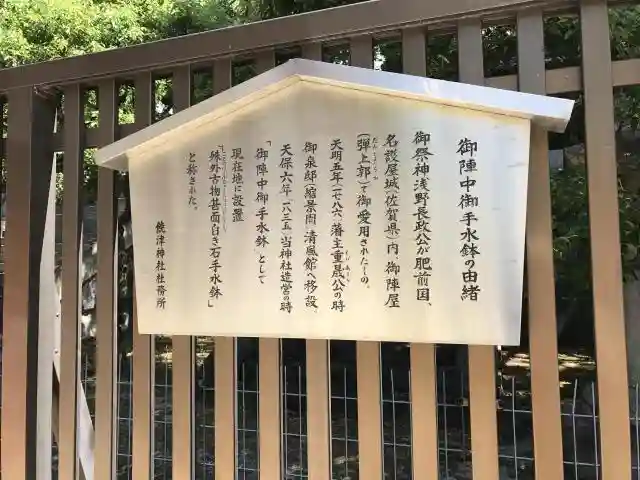 御陣中御手水鉢の由緒
御祭神浅野長政公が肥前国、
名護屋城（佐賀県）内、御陣屋
（弾上郭）で御愛用されたもの。
天明五年（一七八六）藩主重晟公の時
御泉邸（縮景園）清風館へ移設、
天保六年（一八三五）当神社造営の時
「御陣中御手水鉢」として
現在地に設置
「殊外古物甚面白き石手水鉢」
と称された。
饒津神社社務所